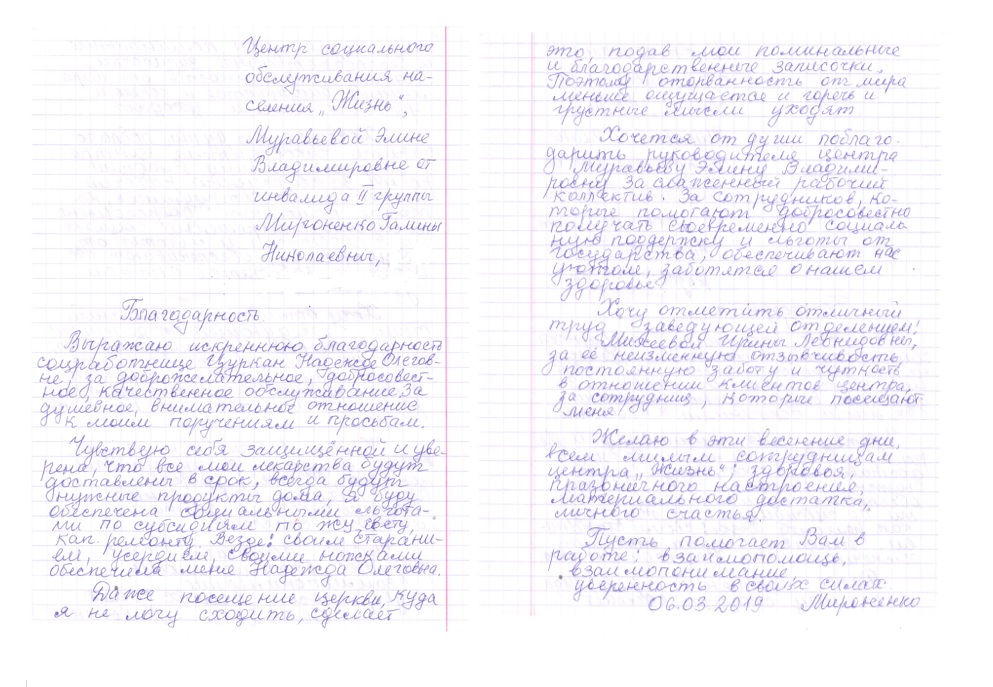 Центр социального
обслуживания на-
селения „Жизнь",
Муравьевой Элине
Владимировне от
инвалида II группы
Мироненко Галины
Николаевны,
Благодарность
Выражаю искреннюю благодарность
соцработнице Цуркан Надежде Олегов-
не за доброжелательное, добросовест-
ное, качественное обслуживание. За
душевное, внимательное отношение
к моим поручениям и просьбам.
Чувствую себя защищённой и уве-
рена, что все мои лекарства будут
доставлены в срок, всегда будут
нужные продукты дома, я буду
обеспечена социальными льгота-
ми по субсидиям по жку, свету,
кап. ремонту. Везде! своим старани-
ем, усердием, своими ножками
обеспечила меня Надежда Олеговна.
Даже посещение церкви, куда
я не могу сходить, сделает
это, подав мои поминальные
и благодарственные записочки.
Поэтому оторванность от мира
меньше ощущается и горечь и
грустные мысли уходят
Хочется от души поблаго-
дарить руководителя центра
Муравьеву Элину Владими-
ровну за слаженный рабочий
коллектив. За сотрудников, ко-
торые помогают добросовестно
получать своевременно социаль
ную поддержку и льготы от
государства, обеспечивают нас
уютом, заботятся о нашем
здоровье
Хочу отметить отличный
труд заведующей отделением!
Михеевой Ирины Леонидовны,
за её неизменную отзывчивость,
постоянную заботу и чуткость
в отношении клиентов центра,
за сотрудниц, которые посещают
меня
Желаю в эти весенние дни,
всем милым сотрудницам
центра „Жизнь": здоровья,
праздничного настроения,
материального достатка,
личного счастья.
Пусть помогает Вам в
работе: взаимопомощь,
взаимопонимание
уверенность в своих силах
06.03.2019 Мироненко